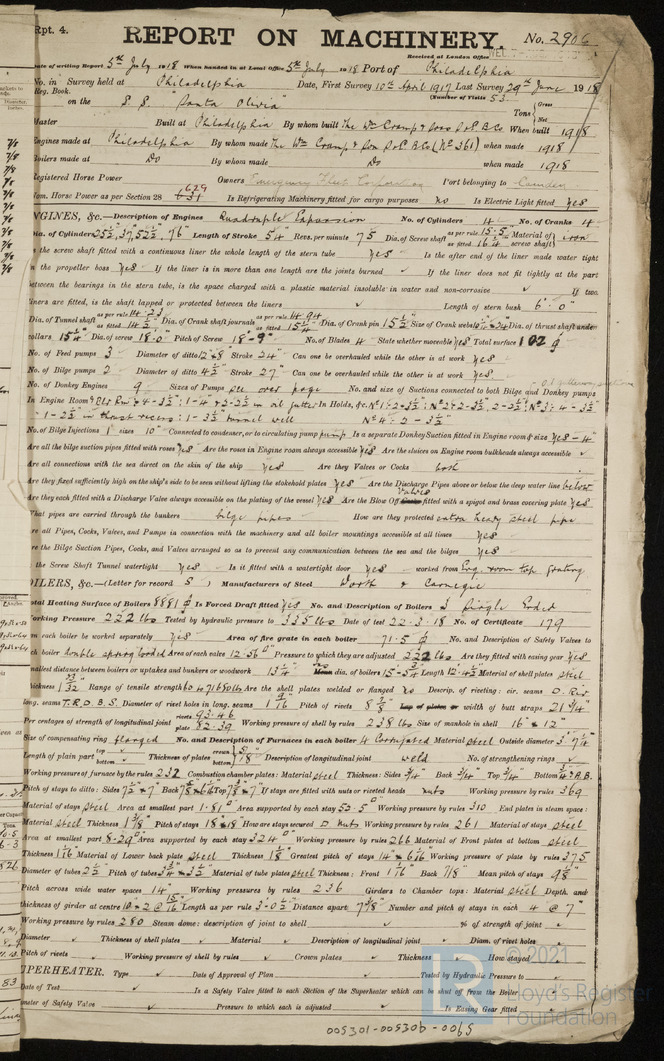 Rpt. 4.
REPORT ON MACHINERY.
No. 2906
Received at London Office
Date of writing Report 5th July 1918 When handed in at Local Office 5th July 1918 Port of Philadelphia
No. in Survey held at Philadelphia Date, First Survey 10th April 1917 Last Survey 29th June 1918
Reg. Book. (Number of Visits 53
on the S. S. Santa Olivia Tons { Gross Net
Master Built at Philadelphia By whom built The Wm Cramp & Sons S & E B Co When built 1918
Engines made at Philadelphia By whom made The Wm Cramp & Son S & E B Co (No 361) when made 1918
Boilers made at Do By whom made Do when made 1918
Registered Horse Power Owners Emergency Fleet Corporation Port belonging to Camden
Nom. Horse Power as per Section 28 631 629 Is Refrigerating Machinery fitted for cargo purposes No Is Electric Light fitted Yes
ENGINES, &c.—Description of Engines Quadruple Expansion No. of Cylinders 4 No. of Cranks 4
Dia. of Cylinders 25½, 37, 52½, 76" Length of Stroke 54" Revs. per minute 75 Dia. of Screw shaft as per rule 15.5" as fitted 16¼" Material of screw shaft iron
Is the screw shaft fitted with a continuous liner the whole length of the stern tube Yes Is the after end of the liner made water tight
in the propeller boss Yes If the liner is in more than one length are the joints burned ✓ If the liner does not fit tightly at the part
between the bearings in the stern tube, is the space charged with a plastic material insoluble in water and non-corrosive ✓ If two
liners are fitted, is the shaft lapped or protected between the liners ✓ Length of stern bush 6'.0"
Dia. of Tunnel shaft as per rule 14.23 as fitted 14½" Dia. of Crank shaft journals as per rule 14.94 as fitted 15½" Dia. of Crank pin 15½" Size of Crank webs Dia. of thrust shaft under
collars 15¼" Dia. of screw 18'.0" Pitch of Screw 18'-9" No. of Blades 4 State whether moveable Yes Total surface 102
No. of Feed pumps 3 Diameter of ditto 12 & 8" Stroke 24" Can one be overhauled while the other is at work Yes
No. of Bilge pumps 2 Diameter of ditto 4½" Stroke 27" Can one be overhauled while the other is at work Yes
No. of Donkey Engines 9 Sizes of Pumps See over page No. and size of Suctions connected to both Bilge and Donkey pumps
In Engine Room In Holds, &c. No 1: 2-3½"; No 2: 2-3½", 2-2½"; No 3: 4-3½"
1-2½" in thrust recess: 1-3½" tunnel well No 4: 2-3½"
No. of Bilge Injections 1 sizes 10" Connected to condenser, or to circulating pump pump Is a separate Donkey Suction fitted in Engine room & size Yes - 4"
Are all the bilge suction pipes fitted with roses Yes Are the roses in Engine room always accessible Yes Are the sluices on Engine room bulkheads always accessible ✓
Are all connections with the sea direct on the skin of the ship Yes Are they Valves or Cocks both
Are they fixed sufficiently high on the ship's side to be seen without lifting the stokehold plates Yes Are the Discharge Pipes above or below the deep water line below
Are they each fitted with a Discharge Valve always accessible on the plating of the vessel Yes Are the Blow Off Cocks Valves fitted with a spigot and brass covering plate Yes
What pipes are carried through the bunkers bilge pipes How are they protected extra heavy steel pipe
Are all Pipes, Cocks, Valves, and Pumps in connection with the machinery and all boiler mountings accessible at all times Yes
Are the Bilge Suction Pipes, Cocks, and Valves arranged so as to prevent any communication between the sea and the bilges Yes
Is the Screw Shaft Tunnel watertight Yes Is it fitted with a watertight door Yes worked from Eng. room top grating
BOILERS, &c.—(Letter for record S) Manufacturers of Steel Worth & Carnegie
Total Heating Surface of Boilers 8881 Is Forced Draft fitted Yes No. and Description of Boilers 3 Single Ended
Working Pressure 222 lbs Tested by hydraulic pressure to 335 lbs Date of test 22.3.18 No. of Certificate 179
Can each boiler be worked separately Yes Area of fire grate in each boiler 71.5 No. and Description of Safety Valves to
each boiler double spring loaded Area of each valve 12.56 Pressure to which they are adjusted 222 lbs Are they fitted with easing gear Yes
Smallest distance between boilers or uptakes and bunkers or woodwork 13¼" dia. of boilers 15'-5¾" Length 12'-4½" Material of shell plates steel
Thickness Range of tensile strength 60 to 71680 lbs Are the shell plates welded or flanged No Descrip. of riveting: cir. seams D. Riv.
long. seams T.R.D.B.S. Diameter of rivet holes in long. seams 1 9/16" Pitch of rivets Lap of plates or width of butt straps 21¾"
Per centages of strength of longitudinal joint rivets 93.46 plate 82.39 Working pressure of shell by rules 238 lbs Size of manhole in shell 16" x 12"
Size of compensating ring flanged No. and Description of Furnaces in each boiler 4 Corrugated Material steel Outside diameter
Length of plain part top bottom Thickness of plates crown bottom Description of longitudinal joint weld No. of strengthening rings ✓
Working pressure of furnace by the rules 232 Combustion chamber plates: Material steel Thickness: Sides ¾" Back ¾" Top ¾" Bottom
Pitch of stays to ditto: Sides Back Top If stays are fitted with nuts or riveted heads nuts Working pressure by rules 369
Material of stays steel Area at smallest part 1.81 Area supported by each stay 53.5 Working pressure by rules 310 End plates in steam space:
Material steel Thickness 1⅛" Pitch of stays 18 x 18" How are stays secured D nuts Working pressure by rules 261 Material of stays steel
Area at smallest part 8.29 Area supported by each stay 324 Working pressure by rules 266 Material of Front plates at bottom steel
Thickness 1 1/16" Material of Lower back plate steel Thickness Greatest pitch of stays Working pressure of plate by rules 375
Diameter of tubes 2½ Pitch of tubes Material of tube plates steel Thickness: Front 1 1/16" Back ⅞" Mean pitch of stays
Pitch across wide water spaces 14" Working pressures by rules 236 Girders to Chamber tops: Material steel Depth and
thickness of girder at centre Length as per rule 3'-0½" Distance apart 7⅜" Number and pitch of stays in each 4 @ 7"
Working pressure by rules 280 Steam dome: description of joint to shell ✓ % of strength of joint
Diameter ✓ Thickness of shell plates ✓ Material ✓ Description of longitudinal joint ✓ Diam. of rivet holes
Pitch of rivets ✓ Working pressure of shell by rules ✓ Crown plates ✓ Thickness How stayed
SUPERHEATER. Type ✓ Date of Approval of Plan Tested by Hydraulic Pressure to
Date of Test ✓ Is a Safety Valve fitted to each Section of the Superheater which can be shut off from the Boiler
Diameter of Safety Valve ✓ Pressure to which each is adjusted ✓ Is Easing Gear fitted
© 2021
Lloyd's Register
Foundation
005301-005306-0065